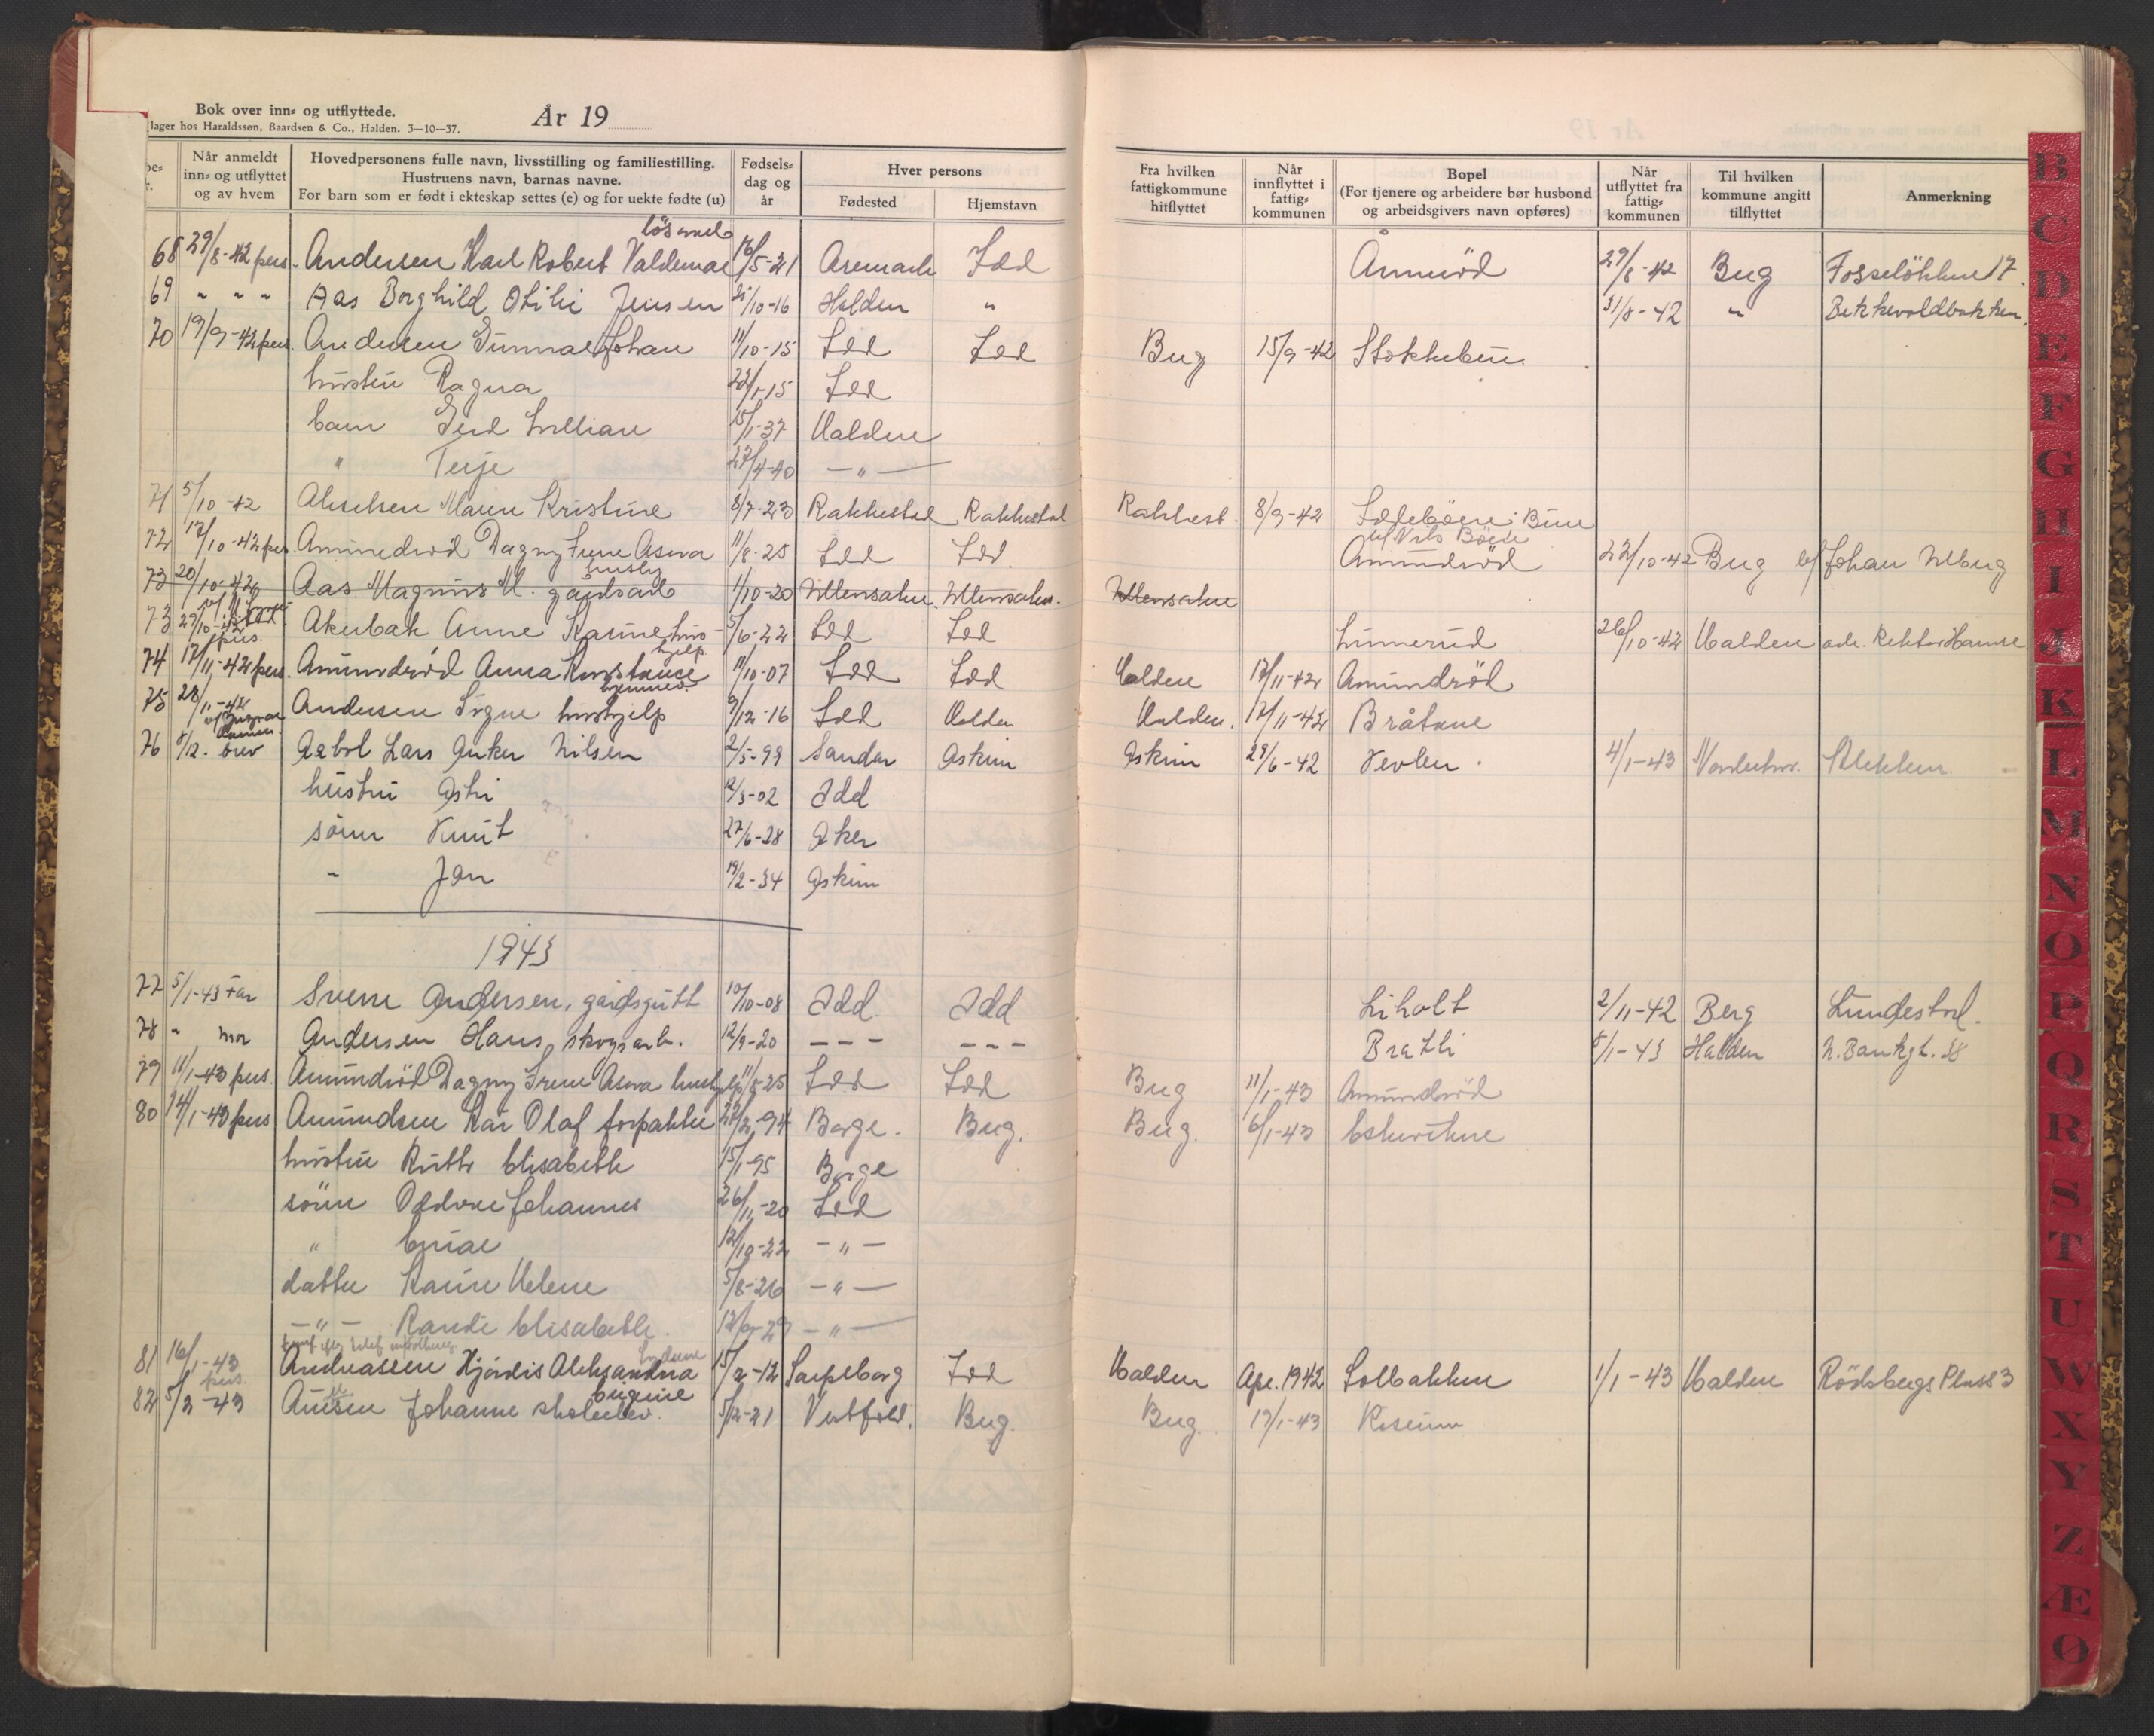 Bok over inn- og utflyttede.
lager hos Haraldssøn, Baardsen & Co., Halden. 3—10—37.
År 19
Når anmeldt inn- og utflyttet og av hvem
Hovedpersonens fulle navn, livsstilling og familiestilling. Hustruens navn, barnas navne. For barn som er født i ekteskap settes (e) og for uekte fødte (u)
Fødsels-dag og år
Hver persons
Fødested
Hjemstavn
Fra hvilken fattigkommune hitflyttet
Når innflyttet i fattig-kommunen
Bopel (For tjenere og arbeidere bør husbond og arbeidsgivers navn opføres)
Når utflyttet fra fattig-kommunen
Til hvilken kommune angitt tilflyttet
Anmerkning
68 29/8-42 pers. Andersen Karl Robert Valdemar 16/5-21 Aremark Idd 29/8-42 Berg Fosseløkken 17
69 " " " Aas Borghild Otilie Jensen 21/10-16 Halden " 31/8-42 " Bekkevoldbakken
70 19/9-42 pers. Andersen Gunnar Johan 11/10-15 Idd Idd Berg 15/9-42
hustru Ragna 22/1-15 Idd
barn Gerd Lillian 15/1-37 Halden
" Terje 27/4-40 — " —
71 5/10-42 Maren Kristine 8/7-23 Rakkestad Rakkestad Rakkest. 8/9-42
72 17/10-42 pers. Amundrød Dagny Irene Asora 11/8-25 Idd Idd. Amundrød 22/10-42 Berg Johan
73 20/10-42 Aas Magnus M. gårdsarb 1/10-20 Ullensaker Ullensaker. Ullensaker
73 29/10-42 pers. Akerbak Anne Karine 5/6-22 Idd Idd Linnerud 26/10-42 Halden
74 17/11-42 pers. Amundrød Anna Konstance 11/10-07 Idd Idd Halden 17/11-42 Amundrød
75 28/11-42 Andersen Signe hushjelp 9/12-16 Idd Halden Halden. 17/11-42 Bråtane
76 8/12. brev Lars Anker Nilsen 2/5-99 Sandar Askim Askim 29/6-42 Vevlen 4/1-43
hustru Astri 12/3-02 Idd
sønn Knut 27/6-28 Aker
" Jan 19/2-34 Askim
1943
77 5/1-43 Far Sverre Andersen, gårdsgutt 10/10-08 Idd Idd Liholt 2/11-42 Berg Lundestad.
78 " mor Andersen Hans, skogsarb. 12/9-20 — — — — — — Bratli 8/1-43 Halden N. Bankgt. 38
79 11/1-43 pers. Amundrød Dagny Irene Asora 11/8-25 Idd Idd Berg 11/1-43 Amundrød
80 14/1-43 pers Amundsen Kår Olaf forpakter 22/2-94 Borge. Berg. Berg. 6/1-43
hustru Ruth Elisabeth 15/1-95 Borge
sønn Oddvar Johannes 26/11-20 Idd
" Einar 12/10-22 — " —
datter Karin Helene 5/8-26 — " —
— " — Randi Elisabeth. 12/6-29 — " —
81 16/1-43 pers. Andreassen Hjørdis Aleksandra 15/2-12 Sarpsborg Idd Halden Apr. 1942 Solbakken 1/1-43 Halden Rødsbergs Plass 3
82 5/2-43 Johanne Eugenie skoleelev. 5/2-21 Vestfold. Berg. Berg. 17/1-43
B
C
D
E
F
G
H
I
J
K
L
M
N
O
P
Q
R
S
T
U
W
X
Y
Z
Æ
Ø